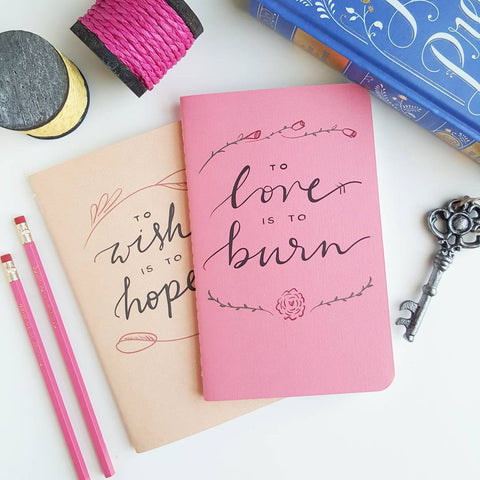 TO
wish
IS TO
hope
TO
love
IS TO
burn